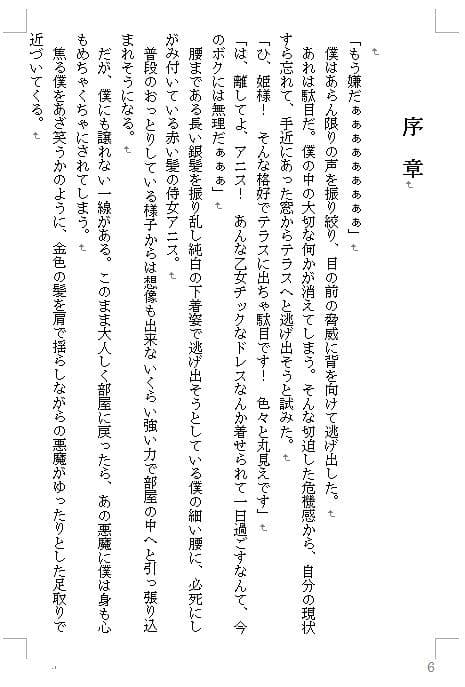 序章
「もう嫌だぁぁぁぁぁぁぁぁぁぁ」
僕はあらん限りの声を振り絞り、目の前の脅威に背を向けて逃げ出した。
あれは駄目だ。僕の中の大切な何かが消えてしまう。そんな切迫した危機感から、自分の現状
すら忘れて、手近にあった窓からテラスへと逃げ出そうと試みた。
「ひ、姫様！　そんな格好でテラスに出ちゃ駄目です！　色々と丸見えです」
「は、離してよ、アニス！　あんな乙女チックなドレスなんか着せられて一日過ごすなんて、今
のボクには無理だぁぁぁ」
腰まである長い銀髪を振り乱し純白の下着姿で逃げ出そうとしている僕の細い腰に、必死にし
がみ付いている赤い髪の侍女アニス。
普段のおっとりしている様子からは想像も出来ないくらい強い力で部屋の中へと引っ張り込
まれそうになる。
だが、僕にも譲れない一線がある。このまま大人しく部屋に戻ったら、あの悪魔に僕は身も心
もめちゃくちゃにされてしまう。
焦る僕をあざ笑うかのように、金色の髪を肩で揺らしながらの悪魔がゆったりとした足取りで
近づいてくる。
6